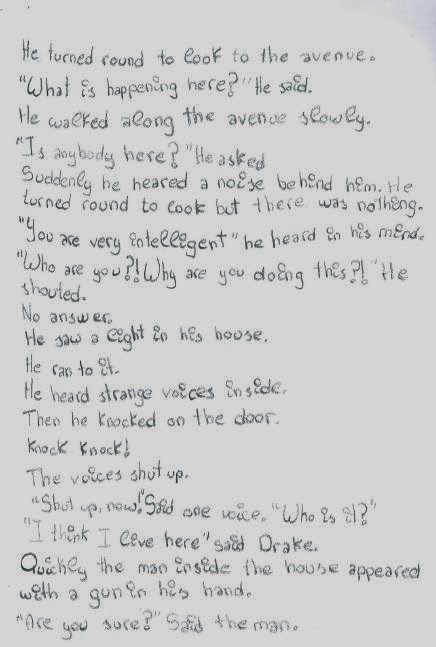 He turned round to look to the avenue.
"What is happening here?" He said.
He walked along the avenue slowly.
"Is anybody here?" He asked
Suddenly he heared a noise behind him. He
turned round to look but there was nothing.
"You are very intelligent" he heard in his mind.
"Who are you?! Why are you doing this?!" He
shouted.
No answer.
He saw a light in his house.
He ran to it.
He heard strange voices inside.
Then he knocked on the door.
Knock Knock!
The voices shut up.
"Shut up, now!" Said one voice. "Who is it?"
"I think I live here" said Drake.
Quickly the man inside the house appeared
with a gun in his hand.
"Are you sure?" Said the man.